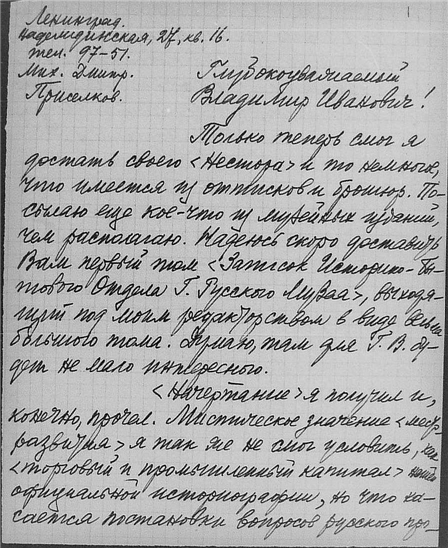 Ленинград.
Надеждинская, 27, кв. 16.
тел. 97-51.
Мих. Дмитр.
Приселков.
Глубокоуважаемый
Владимир Иванович!
Только теперь смог я
достать своего <Нестора> и то немногое,
что имеется из оттисков и брошюр. По-
сылаю еще кое-что из музейных изданий
чем располагаю. Надеюсь скоро доставить
Вам первый том <Записок Историко-бы-
тового Отдела Г. Русского Музея>, выходя-
щий под моим редакторством в виде
большого тома. Думаю, там для Г. В. бу-
дет не мало интересного.
<Начертание> я получил и,
конечно, прочел. Мистическое значение <мест-
развития> я так же не смог усло­вить, как
<торговый и промышленный капитал>
официальной историографии, но что ка-
сается постановки вопросов русского про-